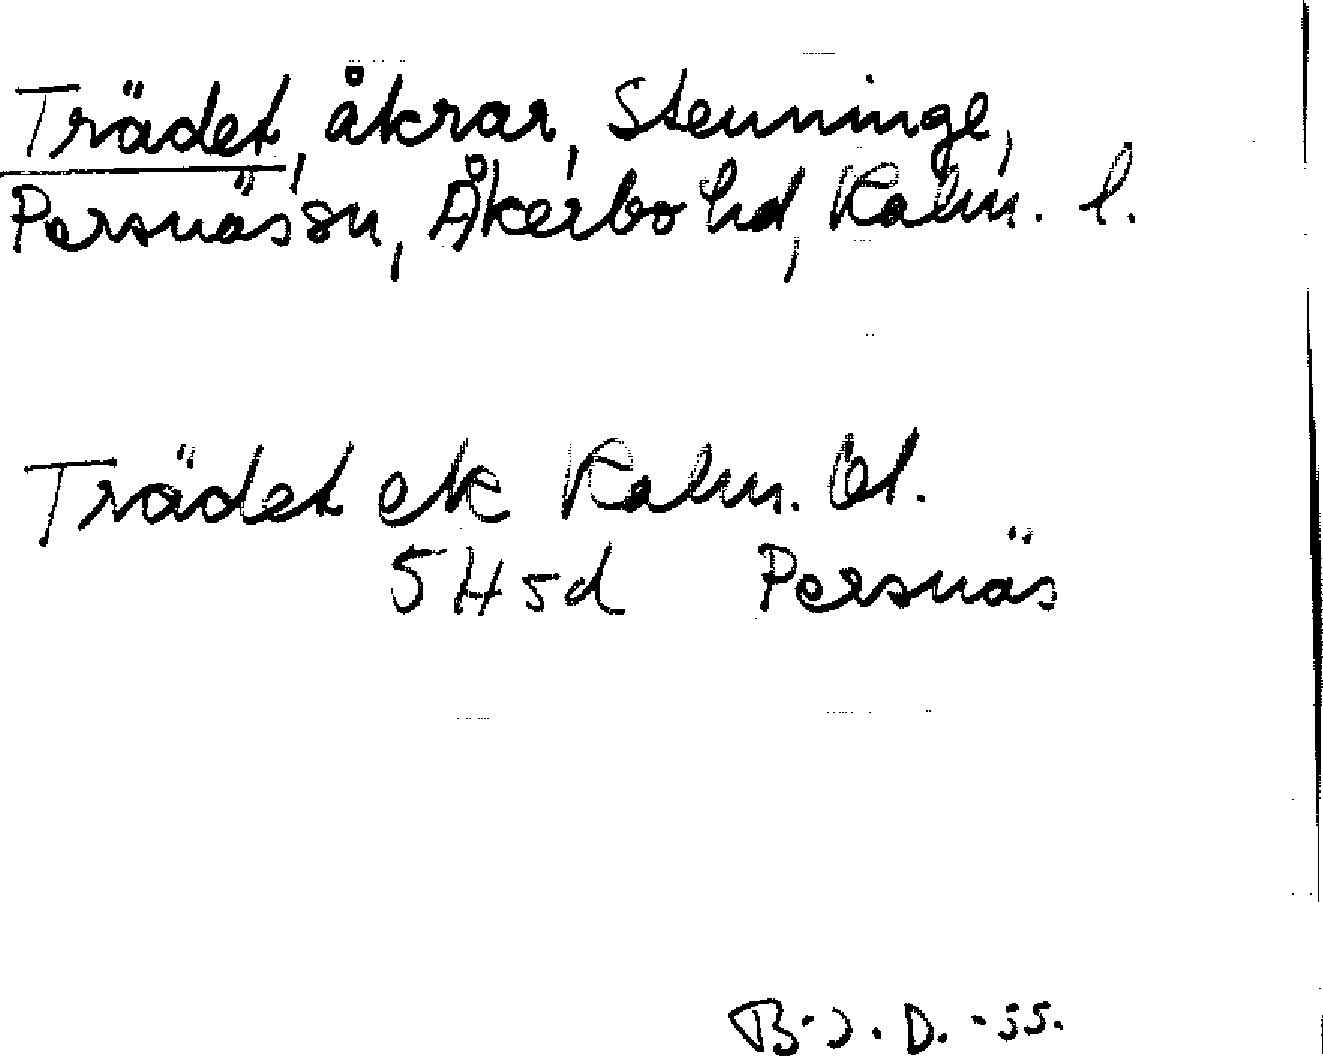 Trädet, åkrar, Stenninge,
Persnäs sn, Åkerbo hd, Kalm. l.
Trädet ek Kalm. öl.
5H5d Persnäs
B-J. D. -55.